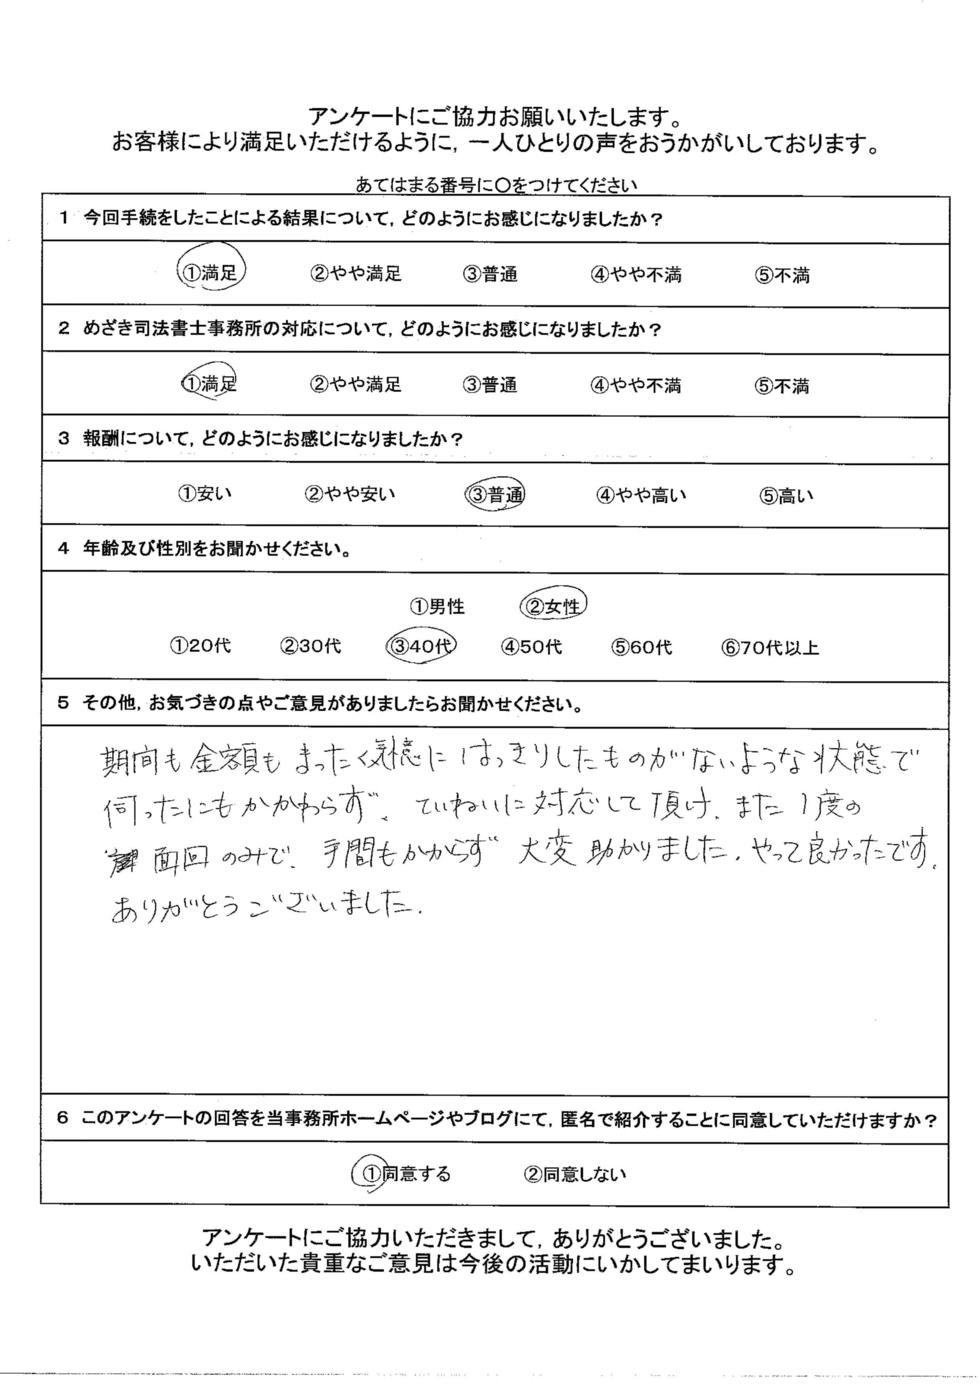 アンケートにご協力お願いいたします。
お客様により満足いただけるように，一人ひとりの声をおうかがいしております。
あてはまる番号に〇をつけてください
1 今回手続をしたことによる結果について，どのようにお感じになりましたか？
①満足 ②やや満足 ③普通 ④やや不満 ⑤不満
2 めざき司法書士事務所の対応について，どのようにお感じになりましたか？
①満足 ②やや満足 ③普通 ④やや不満 ⑤不満
3 報酬について，どのようにお感じになりましたか？
①安い ②やや安い ③普通 ④やや高い ⑤高い
4 年齢及び性別をお聞かせください。
①男性 ②女性
①20代 ②30代 ③40代 ④50代 ⑤60代 ⑥70代以上
5 その他，お気づきの点やご意見がありましたらお聞かせください。
期間も金額もまったく記憶にはっきりしたものがないような状態で
伺ったにもかかわらず、ていねいに対応して頂け、また1度の
面回のみで、手間もかからず大変助かりました。やって良かったです。
ありがとうございました。
6 このアンケートの回答を当事務所ホームページやブログにて，匿名で紹介することに同意していただけますか？
①同意する ②同意しない
アンケートにご協力いただきまして，ありがとうございました。
いただいた貴重なご意見は今後の活動にいかしてまいります。